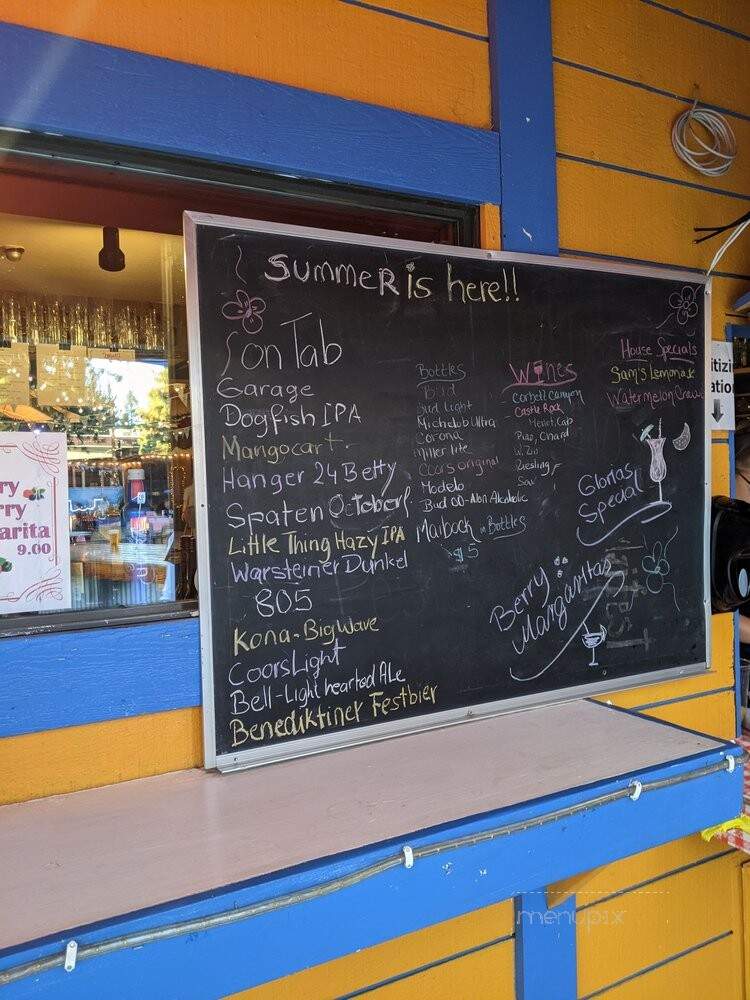 Summer is here!!
on Tab
Garage
Dogfish IPA
Mangocart
Hanger 24 Betty
Spaten October
Little Thing Hazy IPA
Warsteiner Dunkel
805
Kona-Big Wave
Coors Light
Bell-Light hearted Ale
Benediktiner Festbier
Bottles
Bud
Bud Light
Michelob Ultra
Corona
Miller lite
Coors original
Modelo
Bud 00-Non Alcoholic
Maibock in Bottles
$5
Wines
Corbett Canyon
Castle Rock
Merlot, Cab
Pino, Chard
W. Zin
Riesling
Sav
House Specials
Sam's Lemonade
Watermelon Craw
Glorias
Special
Berry
Margaritas
ry
rry
arita
9.00
itizi
atio
menupix